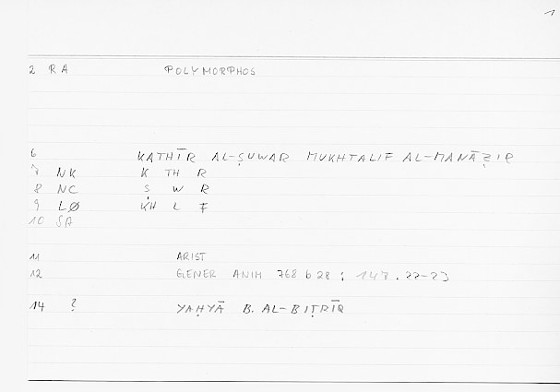 1
2 RA POLYMORPHOS
6 KATHĪR AL-ṢUWAR MUKHTALIF AL-MANĀẒIR
7 NK K TH R
8 NC Ṣ W R
9 LØ KH L F
10 SA
11 ARIST
12 GENER ANIH 768 b 28 : 147.22-23
14 ? YAḤYĀ B. AL-BIṬRĪQ